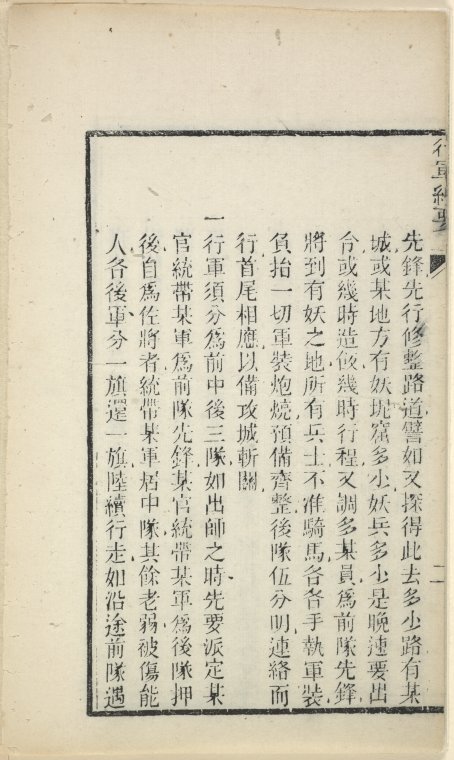 行軍總要
二
先鋒先行修整路道譬如又探得此去多少路有某
城或某地方有妖圯窟多少妖兵多少是晚速要出
令或幾時造飯幾時行程又調多某員為前隊先鋒
將到有妖之地所有兵士不准騎馬各各手執軍裝
負抬一切軍裝炮熕預備齊整後隊伍分明連絡而
行首尾相應以備攻城斬關
一行軍須分為前中後三隊如出師之時先要派定某
官統帶某軍為前隊先鋒某官統帶某軍為後隊押
後自為佐將者統帶某軍居中隊其餘老弱被傷能
人各後軍分一旗還一旗陸續行走如沿途前隊遇